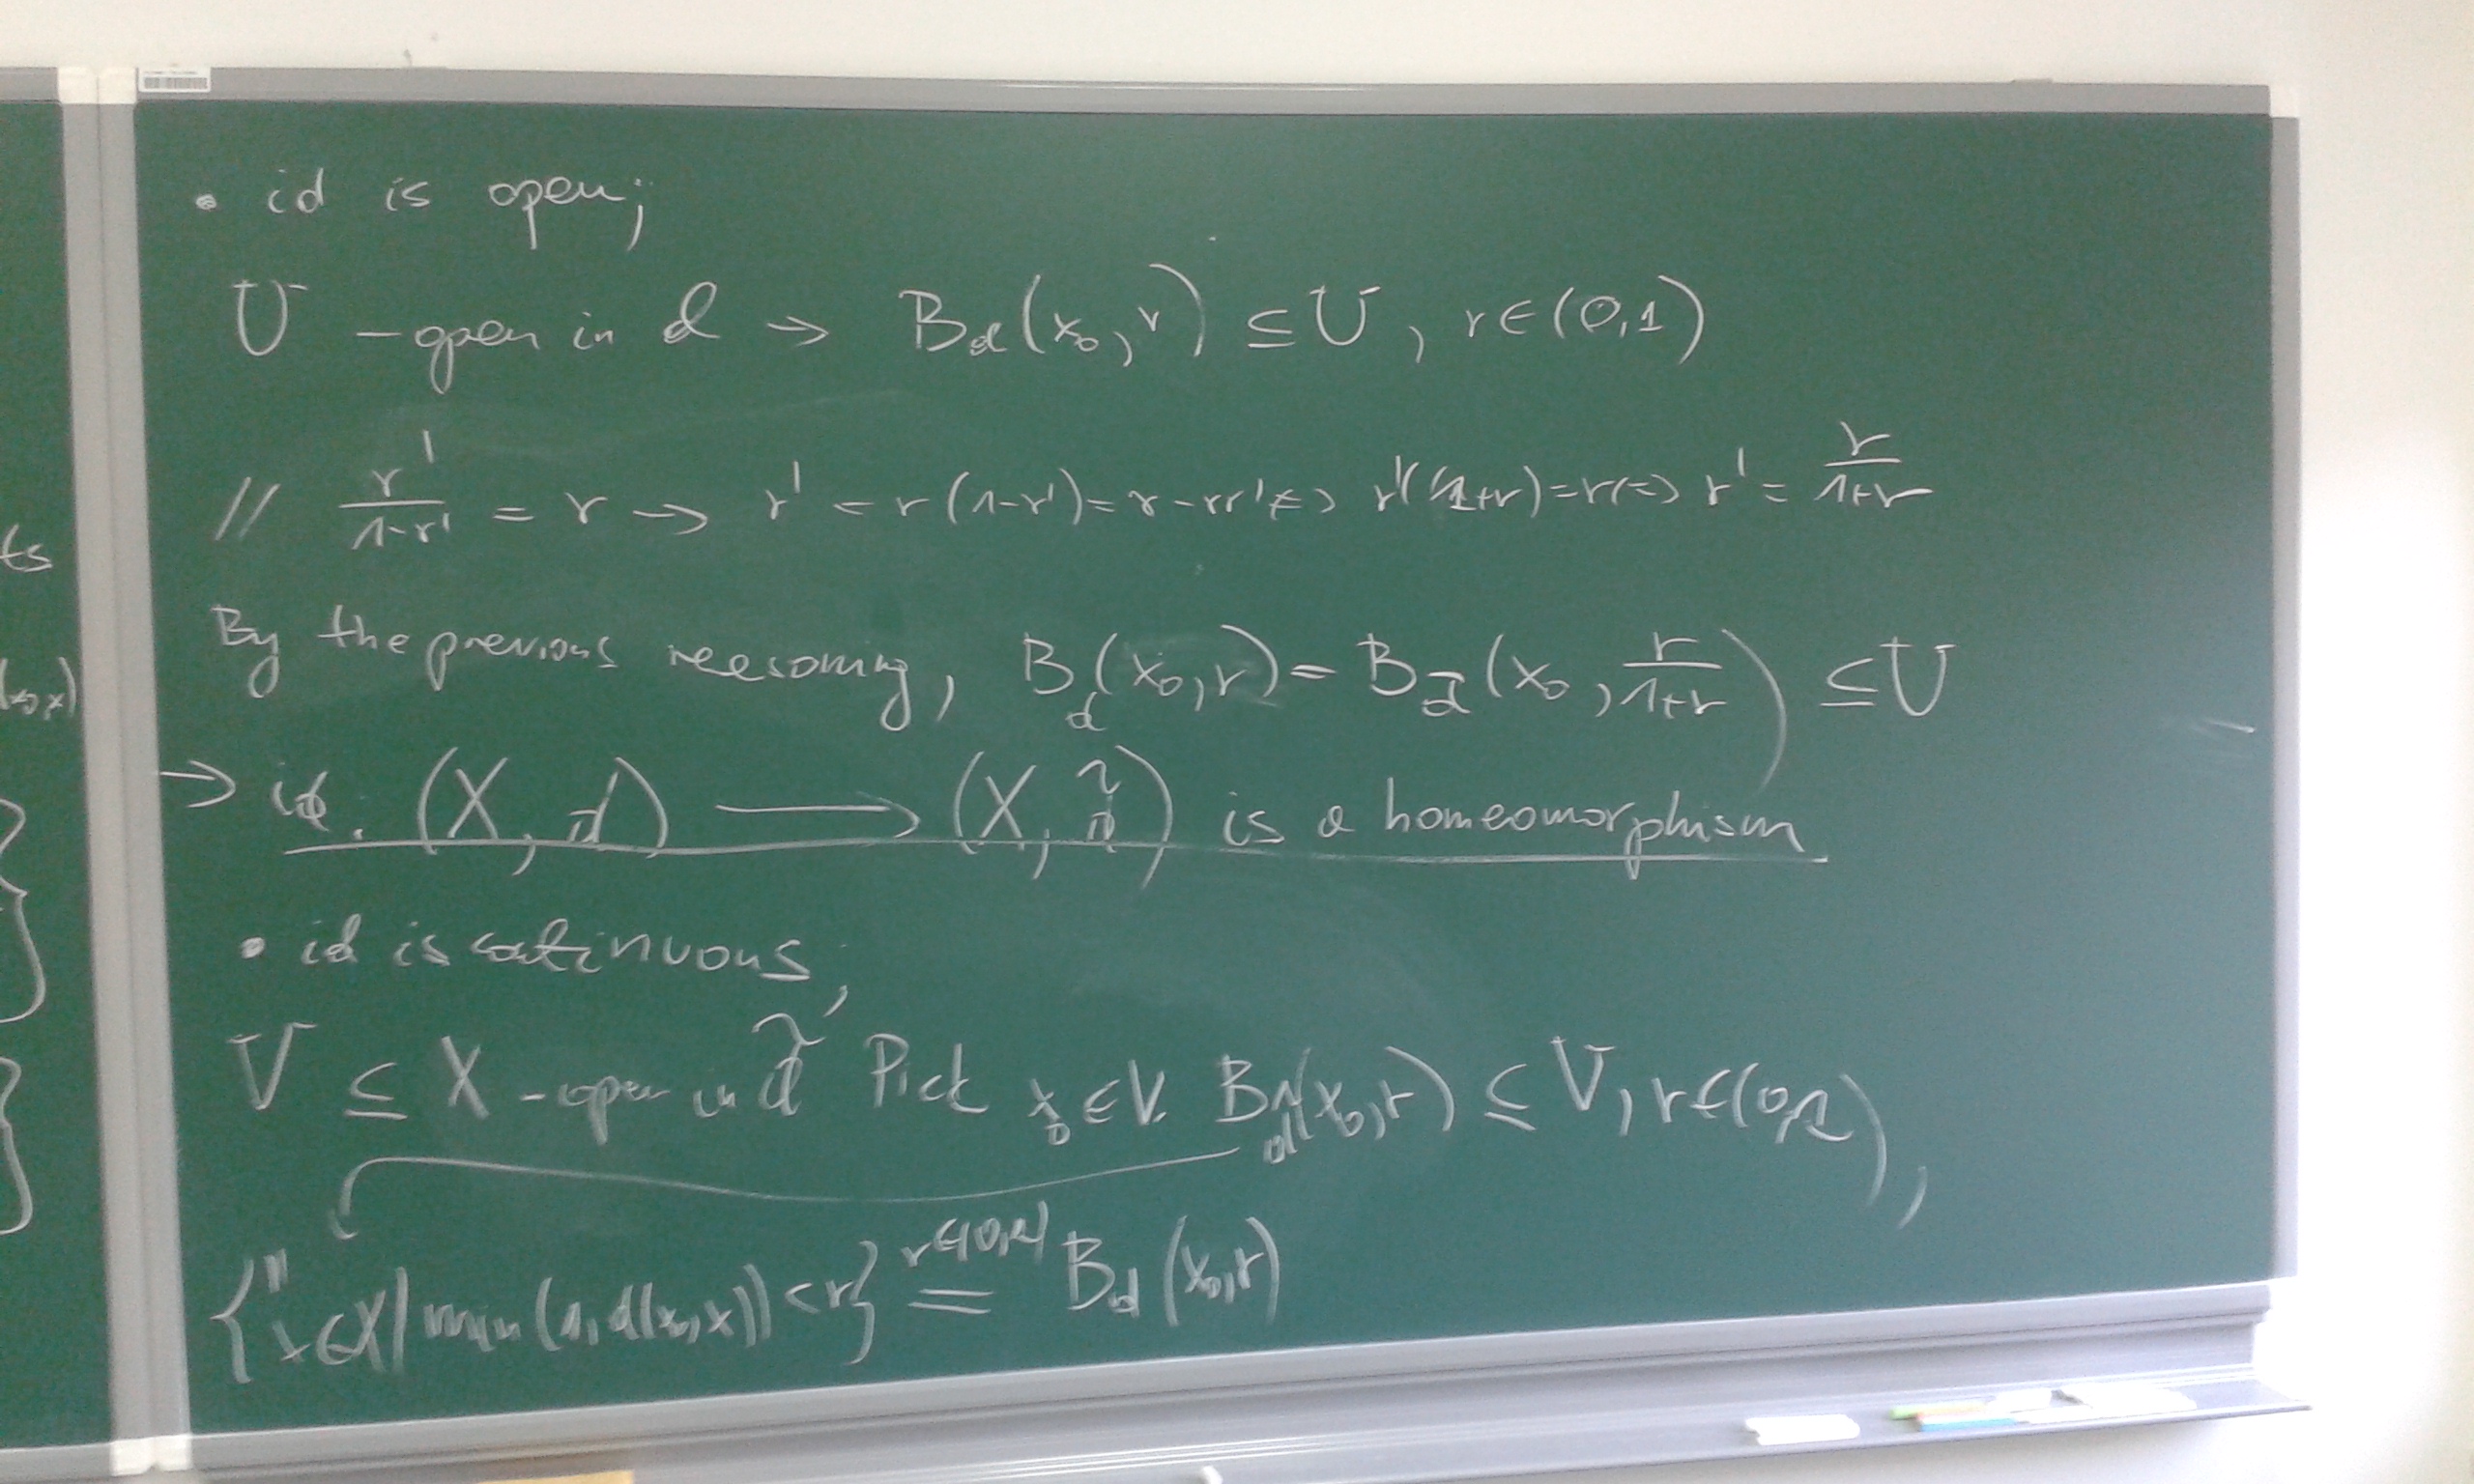 • id is open;
U - open in d → B_d(x₀, r) ⊆ U, r∈(0,1)
// r'/(1-r') = r → r' = r(1-r') = r-rr' ⇔ r'(1+r)=r ⇔ r' = r/(1+r)
By the previous reasoning, B_d(x₀, r) = B_d̄(x₀, r/(1+r)) ⊆ U
→ id: (X, d) ⟶ (X, d̃) is a homeomorphism
• id is continuous;
V ⊆ X - open in d̃ Pick x₀∈V. B_d̃(x₀, r) ⊆ V, r∈(0,1),
{x∈X | min(1, d(x₀,x)) < r} = B_d(x₀, r)
r∈(0,1)
ts
(x₀,x)